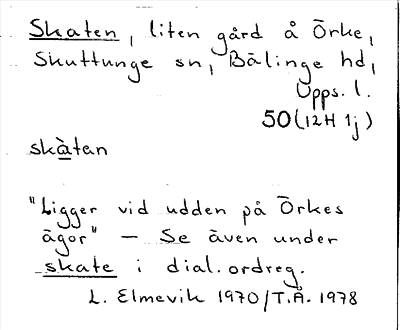 Skaten, liten gård å Örke,
Skuttunge sn, Bälinge hd,
Upps. l.
50 (12H 1j)
skàtan
"Ligger vid udden på Örkes
ägor" – Se även under
skate i dial.ordreg.
L. Elmevik 1970/T.Å. 1978